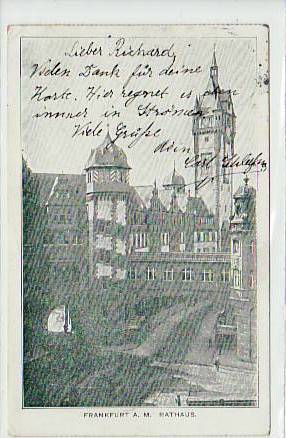 Lieber Richard
Vielen Dank für deine
Karte. Hier regnet es eben
immer in Strömen
Viele Grüße
dein
Carl
FRANKFURT A. M. RATHAUS.